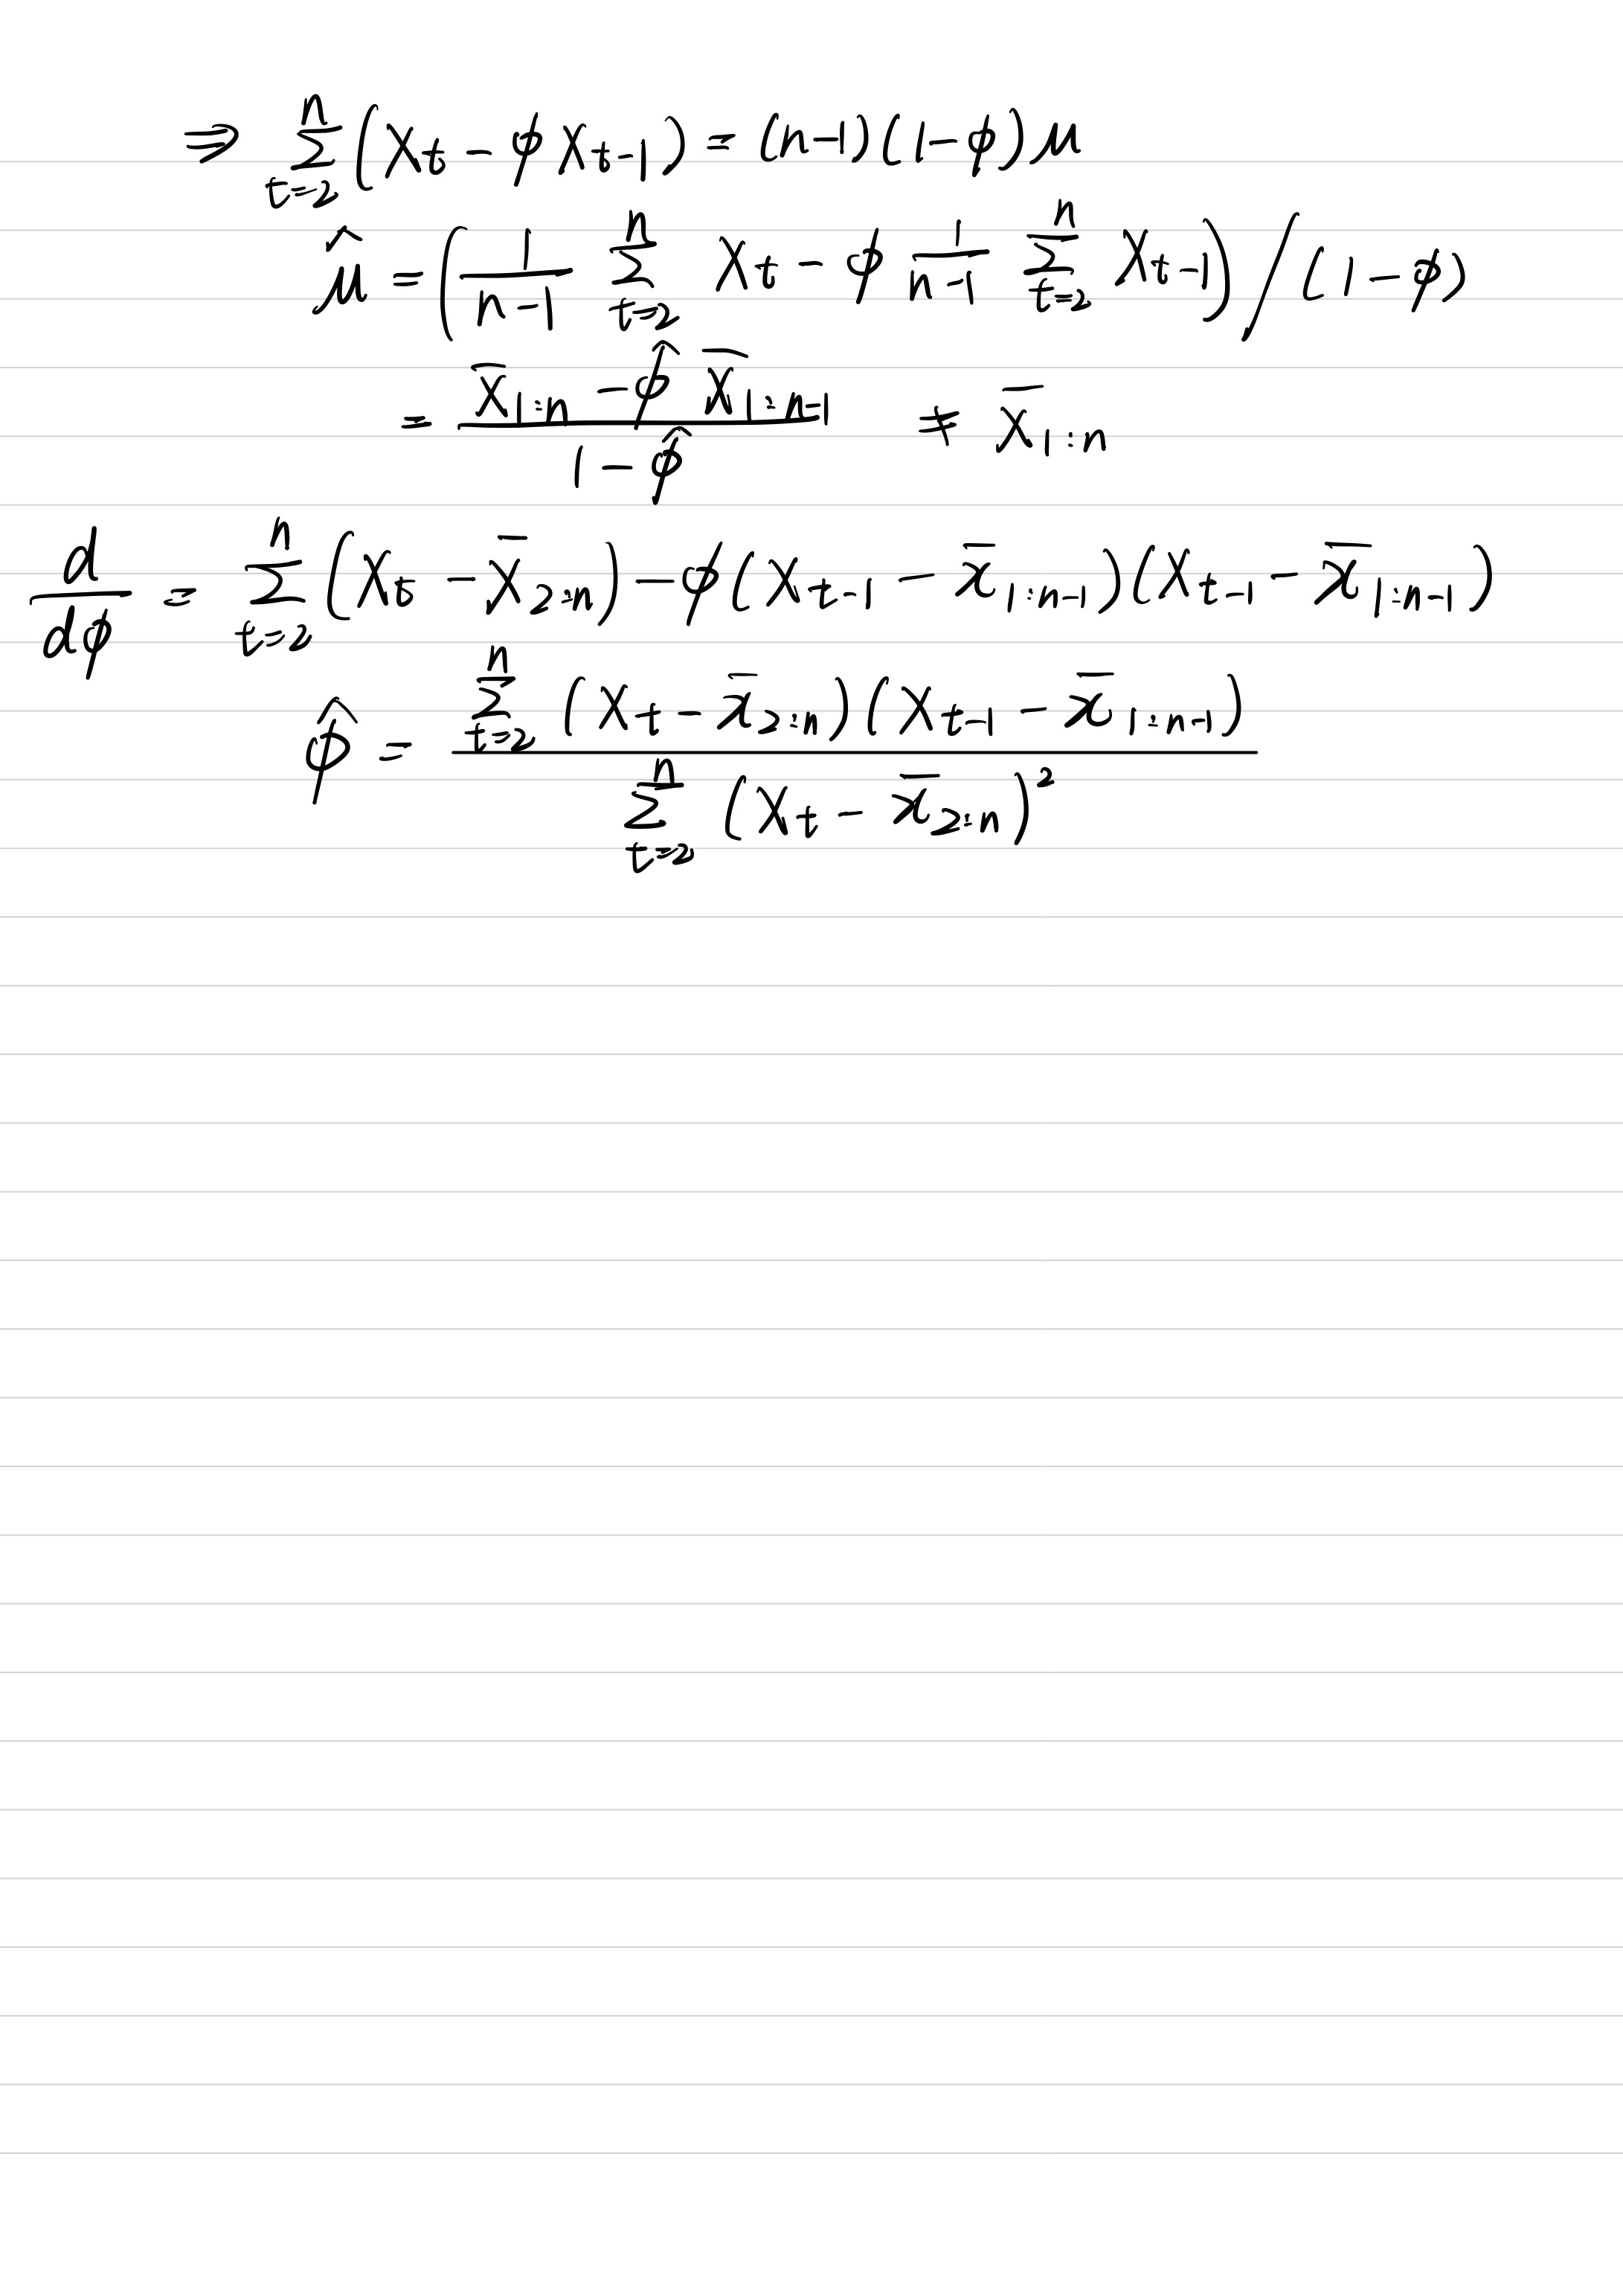 ⇒ $\sum_{t=2}^{n} (X_t - \phi X_{t-1}) = (n-1)(1-\phi)\mu$
$\hat{\mu} = \left( \frac{1}{n-1} \sum_{t=2}^{n} X_t - \phi \frac{1}{n-1} \sum_{t=2}^{n} X_{t-1} \right) / (1-\phi)$
$= \frac{\overline{X}_{1:n} - \hat{\phi} \overline{X}_{1:n-1}}{1 - \hat{\phi}} \neq \overline{X}_{1:n}$
$\frac{d}{d\phi} = \sum_{t=2}^{n} (X_t - \overline{X}_{2:n}) - \phi (X_{t-1} - \overline{x}_{1:n-1})(X_{t-1} - \overline{x}_{1:n-1})$
$\hat{\phi} = \frac{\sum_{t=2}^{n} (X_t - \overline{x}_{2:n})(X_{t-1} - \overline{x}_{1:n-1})}{\sum_{t=2}^{n} (X_t - \overline{x}_{2:n})^2}$